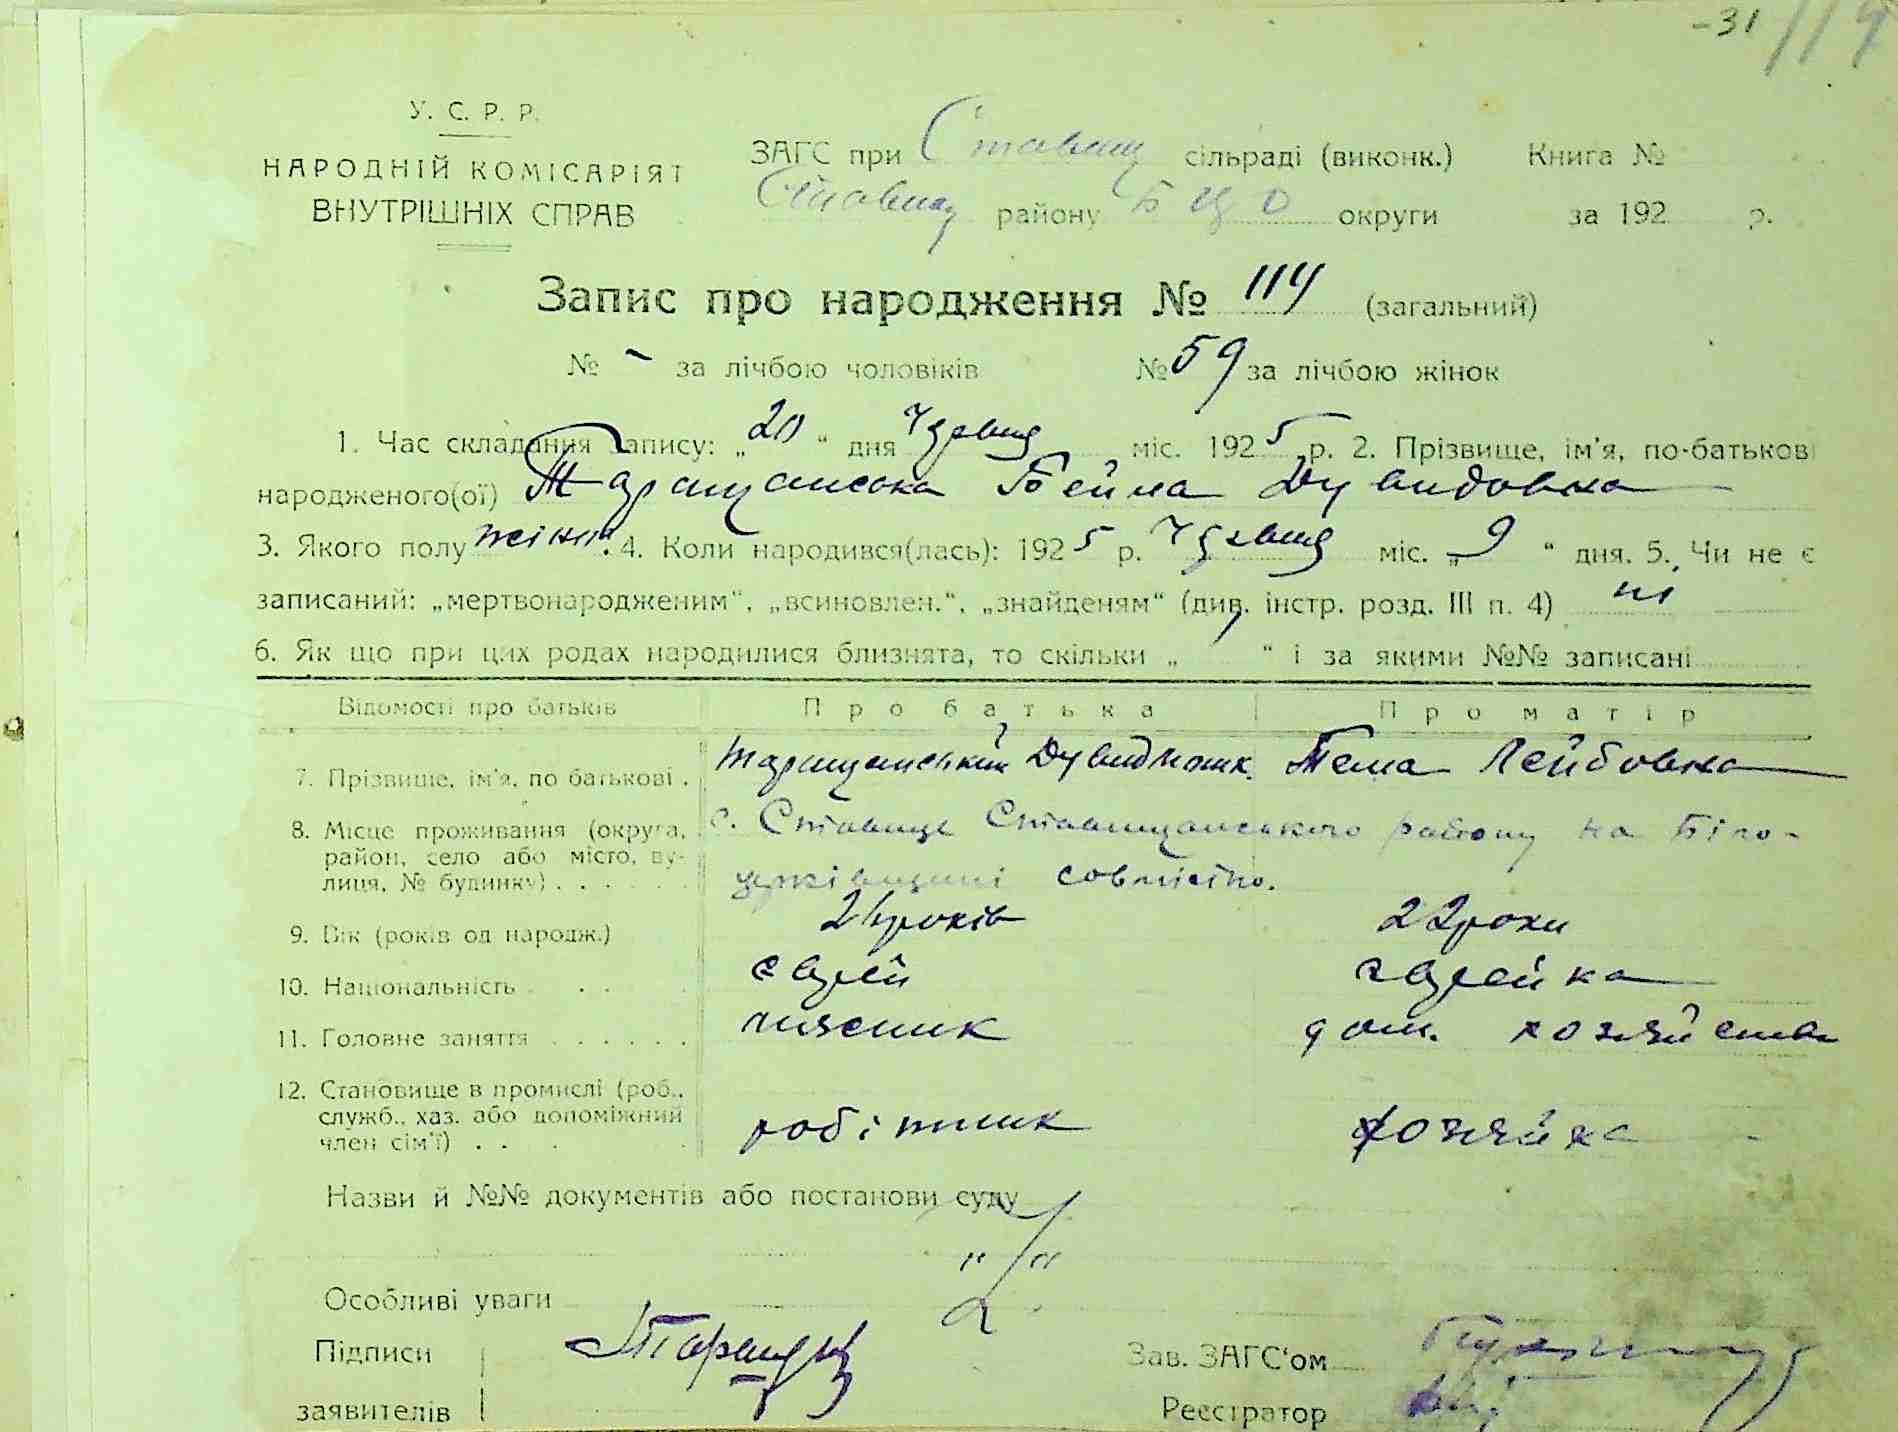 -31 114
У. С. Р. Р.
НАРОДНІЙ КОМІСАРІЯТ
ВНУТРІШНІХ СПРАВ
ЗАГС при Ставищ сільраді (виконк.) Книга №
Ставищ району Б Ц О округи за 192 р.
Запис про народження № 114 (загальний)
№ - за лічбою чоловіків № 59 за лічбою жінок
1. Час складання запису: „20“ дня міс. 1925 р. 2. Прізвище, ім'я, по-батькові
народженого(ої) Таращанська Бейла Дувидовна
3. Якого полу жіноч. 4. Коли народився(лась): 1925 р. міс. „9“ дня. 5. Чи не є
записаний: „мертвонародженим“, „всиновлен.“, „знайденям“ (див. інстр. розд. III п. 4) ні
6. Як що при цих родах народилися близнята, то скільки „ “ і за якими №№ записані
Відомості про батьків Про батька Про матір
7. Прізвище, ім'я, по батькові . Таращанський Дувид Тема Лейбовна
8. Місце проживання (округа, с. Ставище Ставищанського району на Біло-
район, село або місто, ву- церківщині совмістно.
лиця, № будинку) . . . . . .
9. Вік (років од народж.) 24 років 22 роки
10. Національність . . . єврей єврейка
11. Головне заняття . . . . . . мясник дом. хозяйство
12. Становище в промислі (роб.,
служб., хаз. або допоміжний робітник хозяйка
член сім'ї) . . .
Назви й №№ документів або постанови суду
Особливі уваги
Підписи Таращ
Зав. ЗАГС'ом
заявителів
Реєстратор